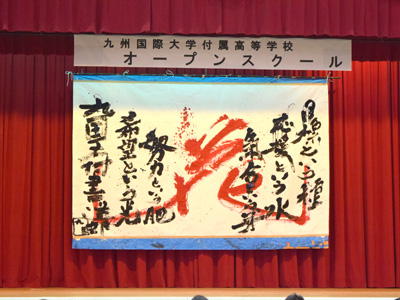 九州国際大学付属高等学校
オープンスクール
目標という種
応援という水
気合いという芽
花
努力という肥
希望という光
九国大付書道部